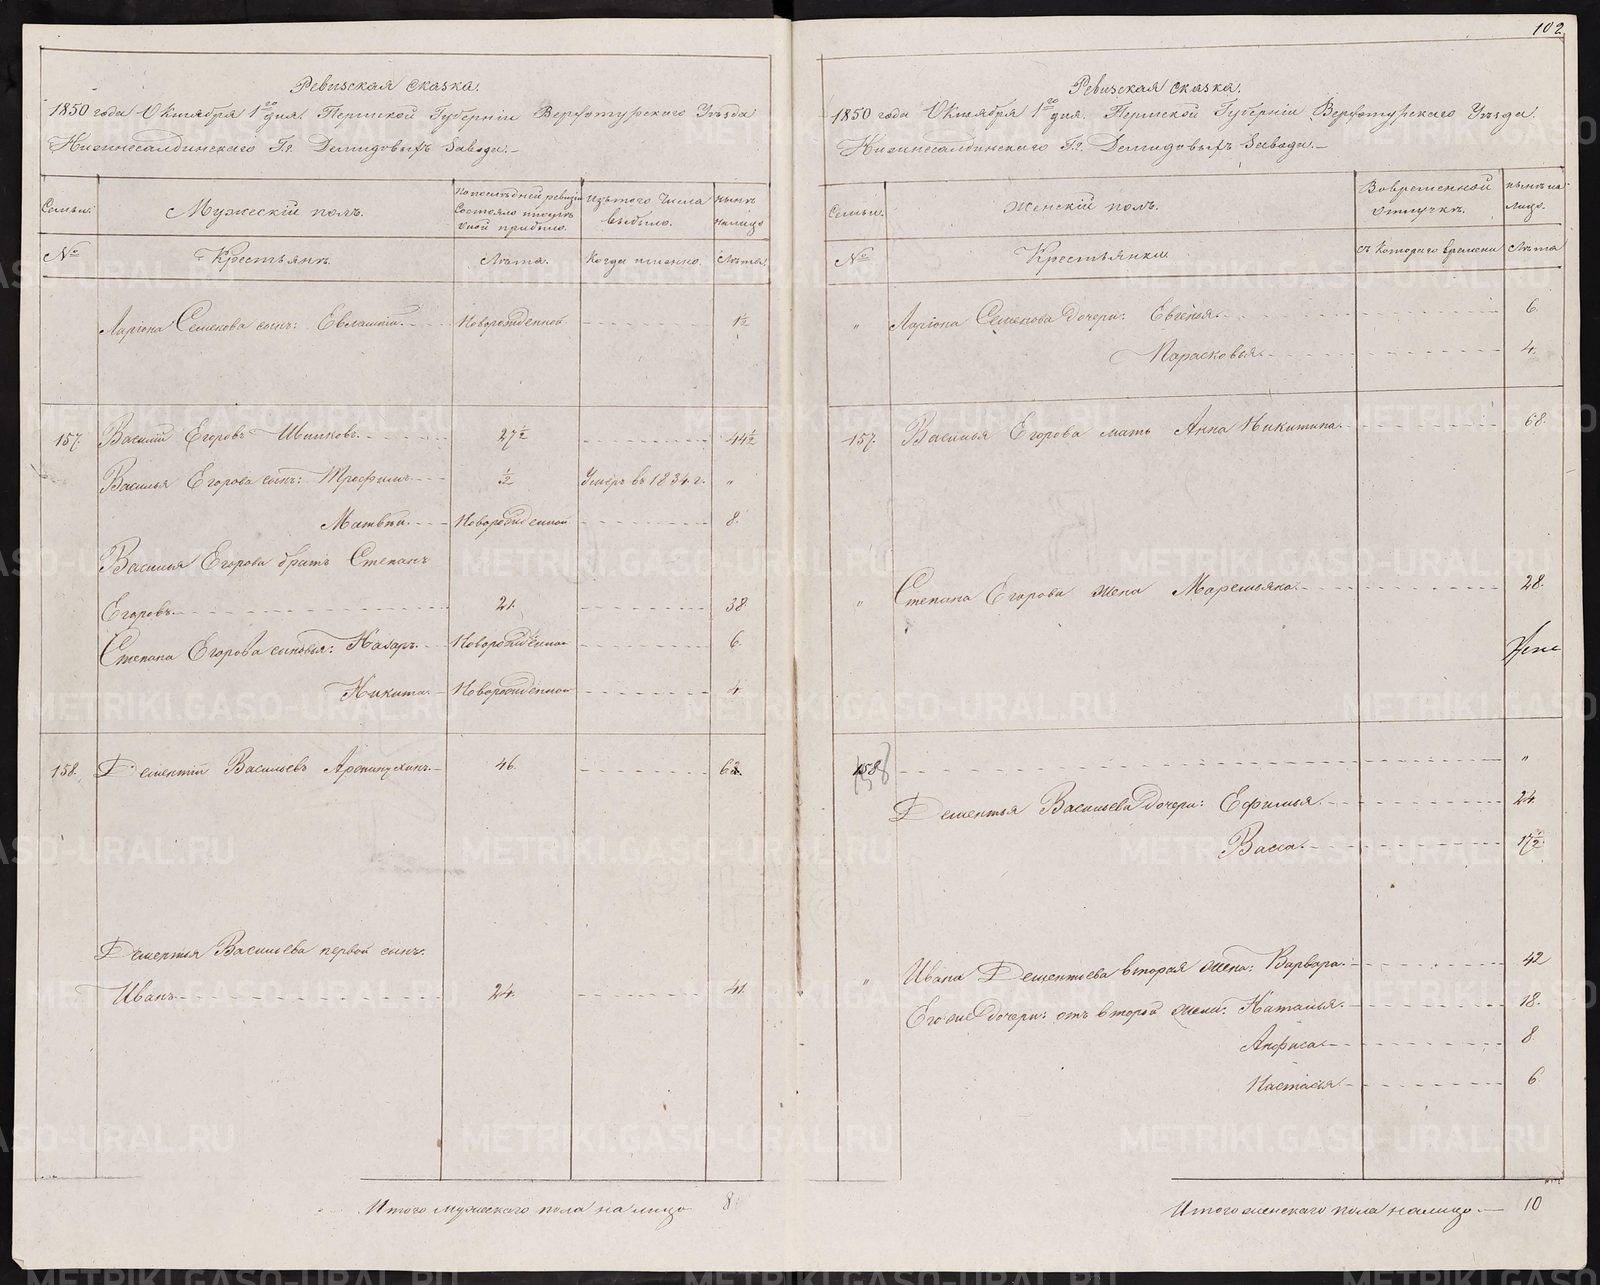 Ревизская сказка.
1850 года Октября 1го дня. Пермской Губернiи Верхотурскаго Уѣзда
Нижнесалдинскаго Гг. Демидовыхъ Завода.
Семьи. Мужескiй полъ. По послѣднѣй ревизiи состояло и послѣ оной прибыло. Изъ того числа выбыло. Нынѣ на лицо
№ Крестьянъ. Лѣта. Когда именно. Лѣта
Ларiона Семенова сынъ: Евлампiй. Новорожденной 1½
157. Василiй Егоровъ 27½ 44½
Василья Егорова сынъ: Трофимъ ½ Умеръ въ 1834 г. "
Матвѣй. Новорожденной 8.
Василья Егорова братъ Степанъ
Егоровъ. 21. 38.
Степана Егорова сыновья: Назаръ. Новорожденной 6
Никита. Новорожденной 4
158. Дементiй Васильевъ 46.
Дементья Васильева первой сынъ.
Иванъ 24. 41.
Итого мужескаго пола на лицо 8
102
Ревизская сказка.
1850 года Октября 1го дня. Пермской Губернiи Верхотурскаго Уѣзда.
Нижнесалдинскаго Гг. Демидовыхъ Завода.
Семьи. Женскiй полъ. Во временной отлучкѣ. Нынѣ на лицо.
№ Крестьянки съ котораго времени Лѣта
" Ларiона Семенова дочери: Евгенья. 6.
Парасковья. 4.
157. Василья Егорова мать Анна Никитина. 68.
" Степана Егорова жена Маремьяна. 28.
158 "
Дементья Васильева дочери: Ефимья. 24.
Васса. 17½
" Ивана Дементьева вторая жена: Варвара. 42
Его же дочери: отъ второй жены: Наталья. 18.
Анфиса 8
Настасья. 6.
Итого женскаго пола на лицо 10
METRIKI.GASO-URAL.RU